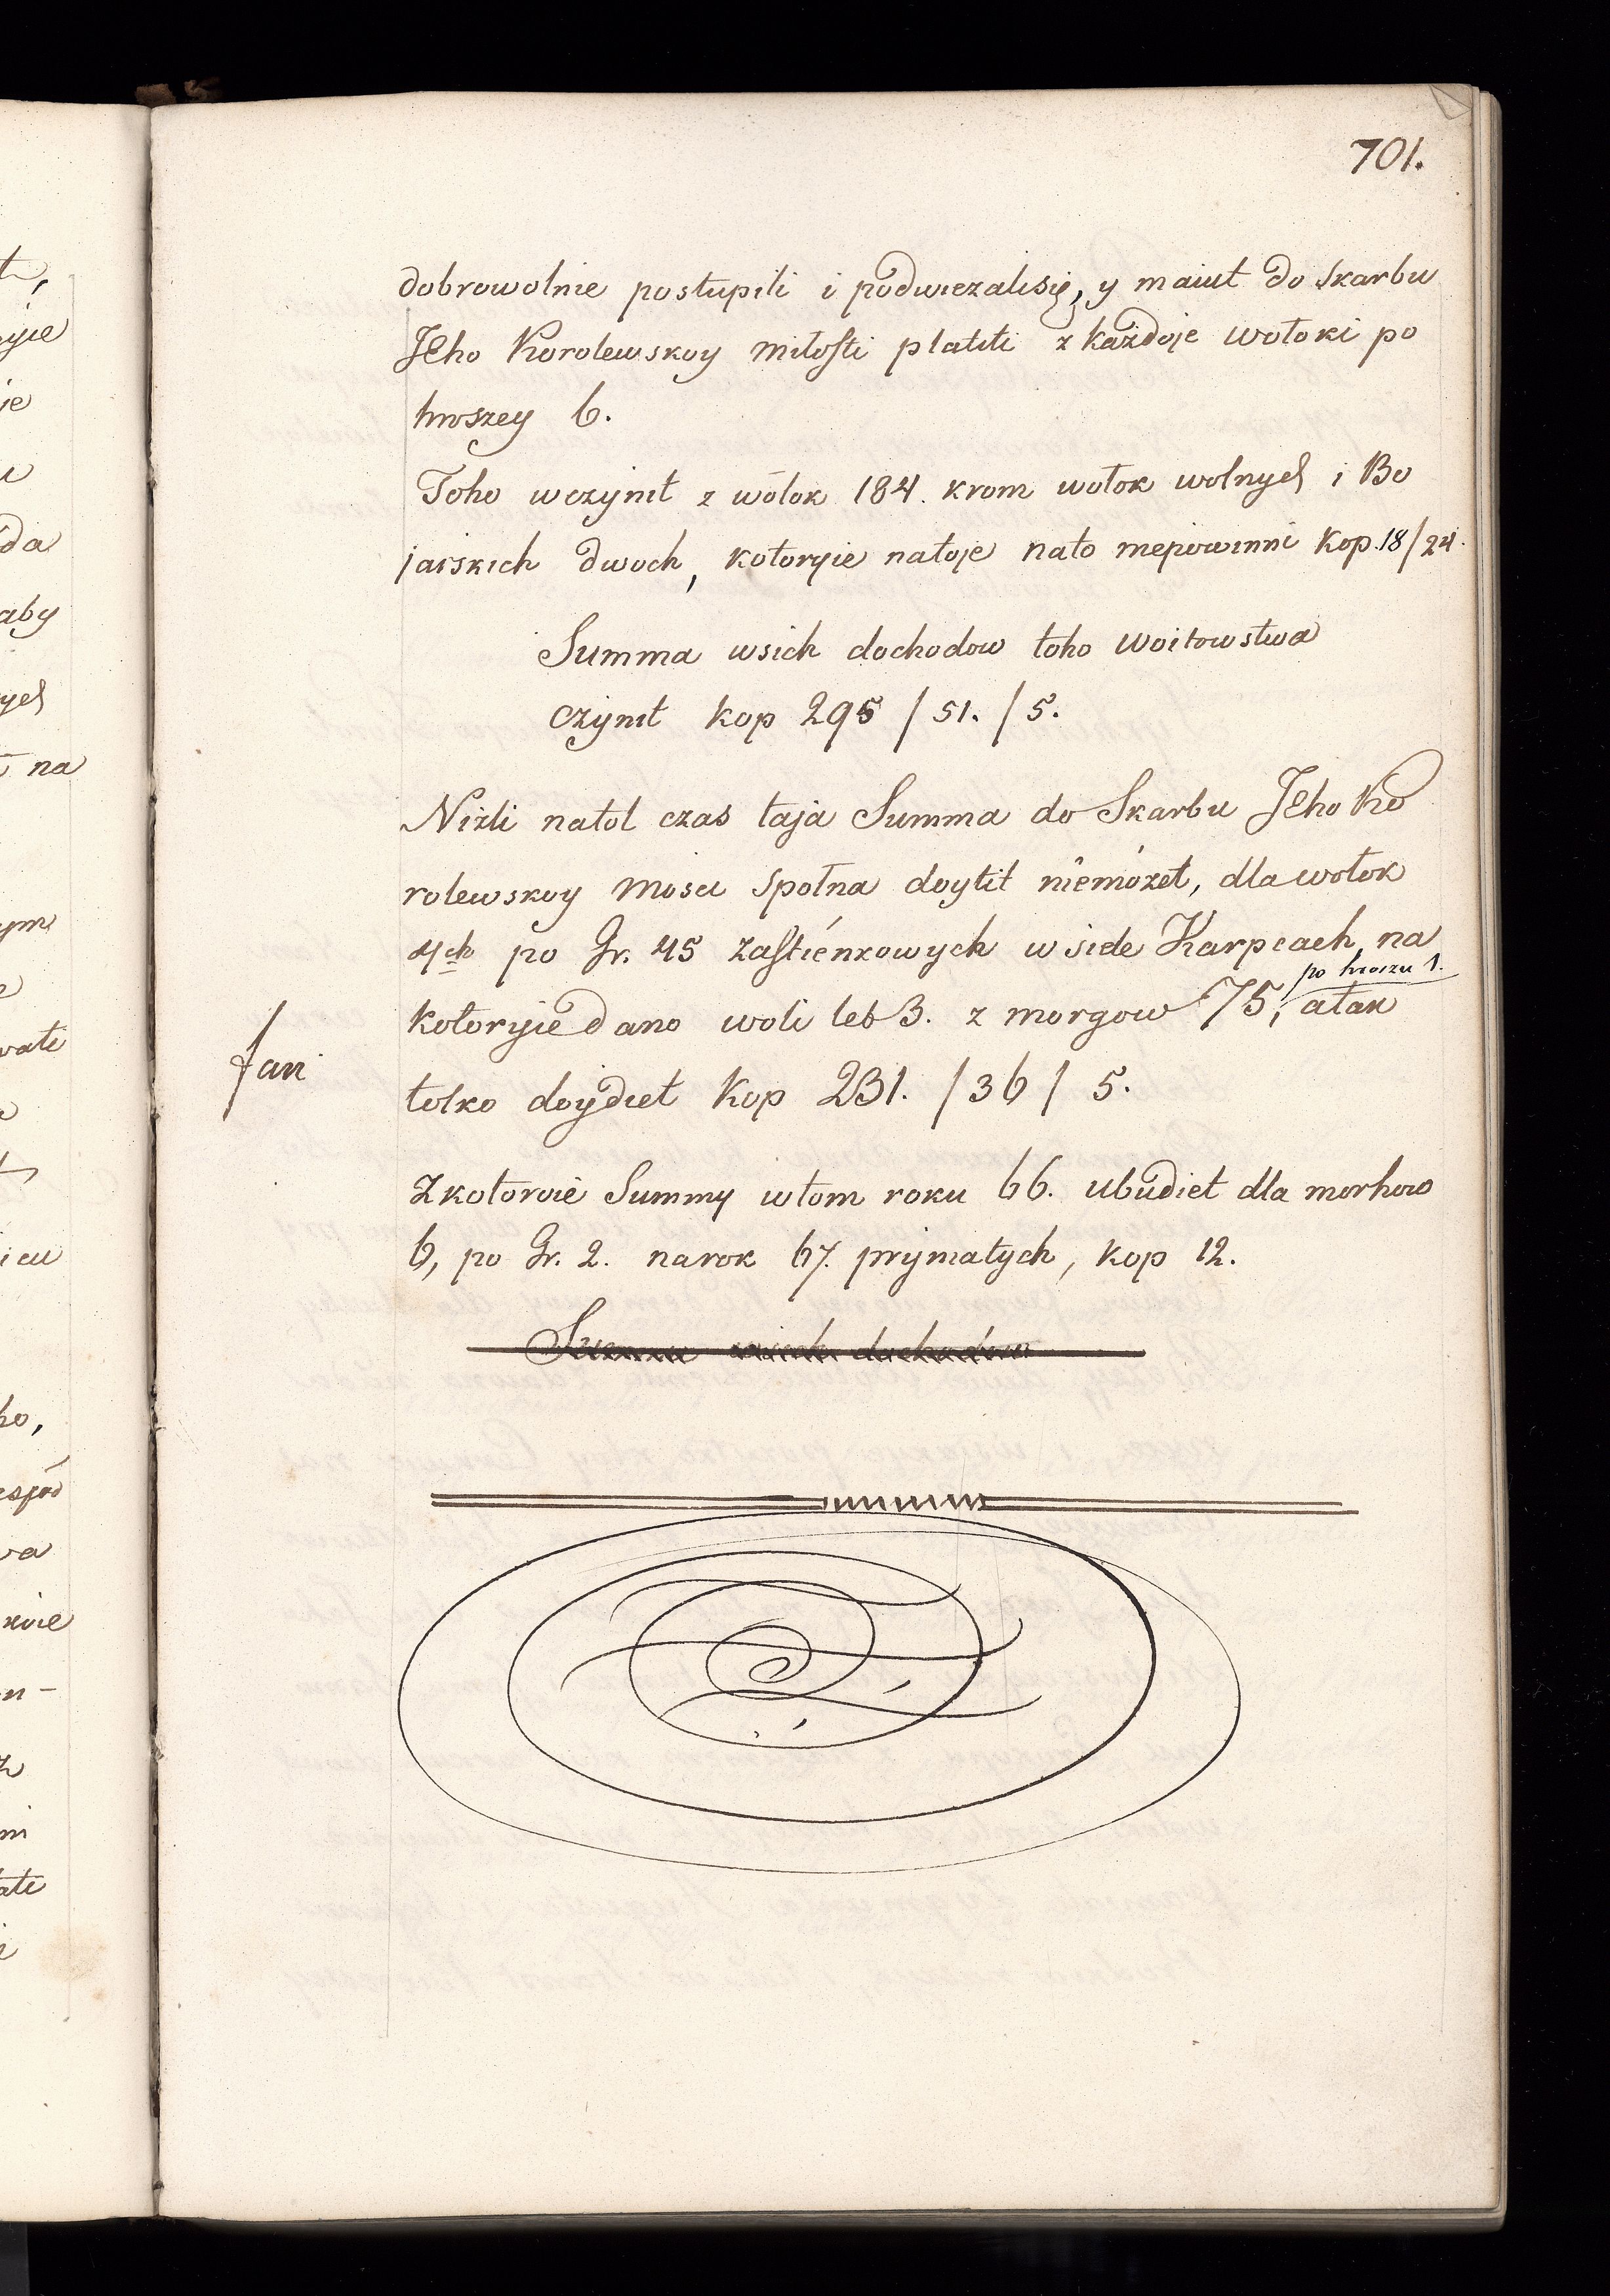 701.
dobrowolnie postupili i podwiezalisię, y maiut do skarbu
JEho Korolewskoy miłosti płatiti z każdoje wołoki po
hroszey 6.
Toho wczynit z wołok 184. krom wołok wolnych i Bo
jarskich dwoch, kotoryie natoje nato niepowinni kop. 18/24.
Summa wsich dochodow toho woitowstwa
czynit kop 295 / 51. / 5.
Niżli natot czas taja Summa do Skarbu JEho Ko
rolewskoy Mosci społna doytit niemożet, dla wołok
4ch po Gr. 45 zastienkowych w siele Karpcach, na
po hroszu 1.
kotoryie dano woli let 3. z morgow 75, atak
tolko doydiet Kop 231. / 36 / 5.
Jan
Zkotoroie Summy wtom roku 66. ubudiet dla morhow
6, po Gr. 2. narok 67. pryjmatych, kop 12.
Summa wsich dochodów
ho,
da
aby
na